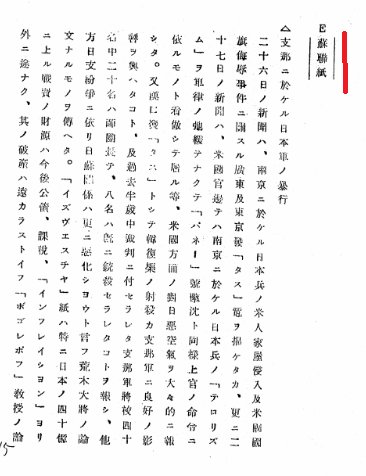 E 蘇聯紙
△支那ニ於ケル日本軍ノ暴行
二十六日ノ新聞ハ、南京ニ於ケル日本兵ノ米人家屋侵入及米國國
旗侮辱事件ニ關スル廣東及東京發「タス」電ヲ揭ケタカ、更ニ二
十七日ノ新聞ハ、米國官邊テハ南京ニ於ケル日本兵ノ「テロリズ
ム」ヲ軍律ノ弛緩テナクテ「パネー」號擊沈ト同樣上官ノ命令ニ
依ルモノト看做シテ居ル等、米國方面ノ對日惡空氣ヲ大々的ニ報
シタ。又漢口發「タス」トシテ韓復榘ノ射殺カ支那軍ニ良好ノ影
響ヲ與ヘタコト、及過去半歲中裁判ニ付セラレタ支那軍將校四十
名中二十名ハ師團長テ、八名ハ旣ニ銃殺セラレタコトヲ報シ、他
方日支紛爭ニ依リ日蘇關係ハ更ニ惡化シヨウト言フ荒木大將ノ論
文ナルモノヲ傳ヘタ。「イズヴエスチヤ」紙ハ特ニ日本ノ四十億
ニ上ル戰費ノ財源ハ今後公債、課稅、「インフレイシヨン」ヨリ
外ニ途ナク、其ノ破產ハ遠カラストイフ「ボゴレポフ」敎授ノ論